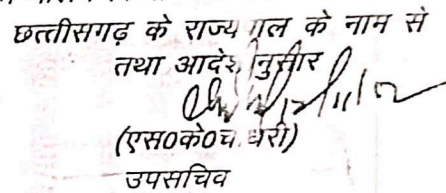 छत्तीसगढ़ के राज्यपाल के नाम से
तथा आदेशानुसार
(एस0के0चौधरी)
उपसचिव